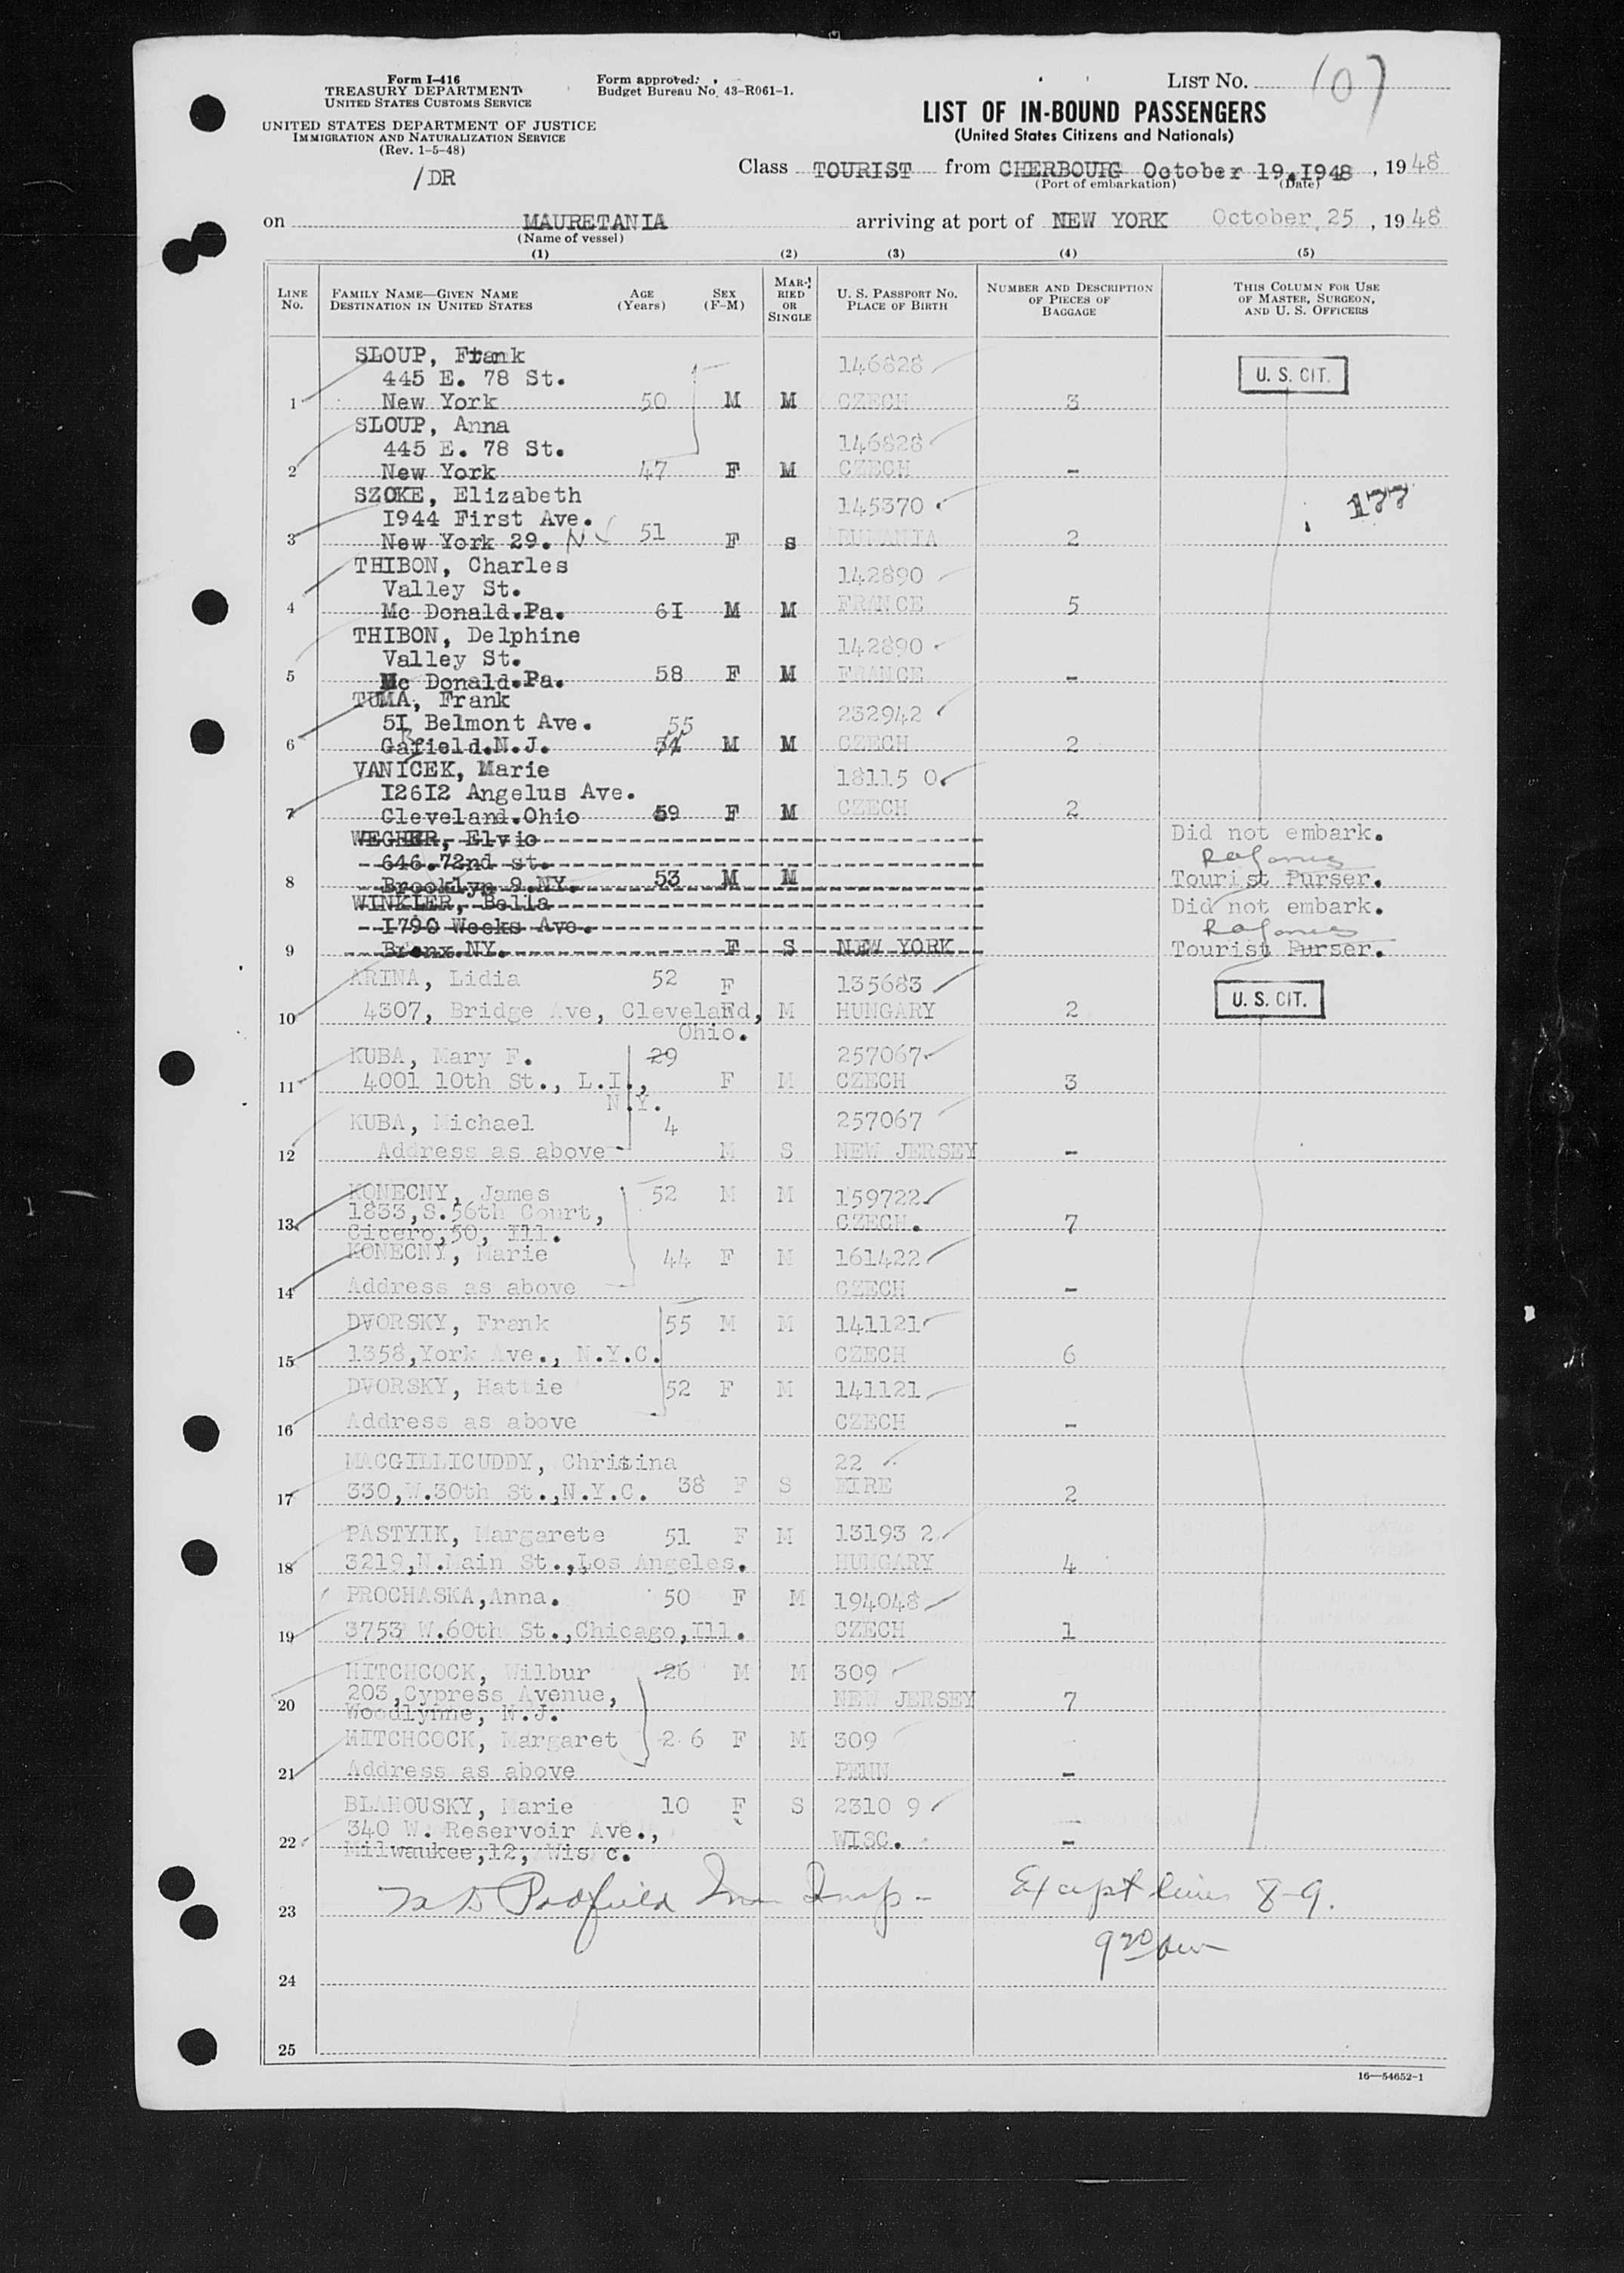 Form I-416
TREASURY DEPARTMENT
UNITED STATES CUSTOMS SERVICE
UNITED STATES DEPARTMENT OF JUSTICE
IMMIGRATION AND NATURALIZATION SERVICE
(Rev. 1-5-48)
/DR
Form approved:
Budget Bureau No. 43-R061-1.
LIST NO. 107
LIST OF IN-BOUND PASSENGERS
(United States Citizens and Nationals)
Class TOURIST from CHERBOURG October 19.I948, 1948
(Port of embarkation) (Date)
on MAURETANIA arriving at port of NEW YORK October 25, 1948
(Name of vessel)
(1) (2) (3) (4) (5)
LINE NO. FAMILY NAME—GIVEN NAME DESTINATION IN UNITED STATES AGE (Years) SEX (F-M) MARRIED OR SINGLE U. S. PASSPORT NO. PLACE OF BIRTH NUMBER AND DESCRIPTION OF PIECES OF BAGGAGE THIS COLUMN FOR USE OF MASTER, SURGEON, AND U. S. OFFICERS
SLOUP, Frank 146828
445 E. 78 St. U. S. CIT.
1 New York 50 M M CZECH 3
SLOUP, Anna
445 E. 78 St. 146828
2 New York 47 F M CZECH -
SZOKE, Elizabeth 145370 177
I944 First Ave.
3 New York 29. 51 F s RUMANIA 2
THIBON, Charles 142890
Valley St.
4 Mc Donald.Pa. 6I M M FRANCE 5
THIBON, Delphine 142890
Valley St.
5 Mc Donald.Pa. 58 F M FRANCE -
TUMA, Frank 232942
5I Belmont Ave. 55
6 Gafield.N.J. 54 M M CZECH 2
VANICEK, Marie 18115 0
I26I2 Angelus Ave.
7 Cleveland.Ohio 59 F M CZECH 2
WEGHER, Elvio Did not embark.
646.72nd st.
8 Brooklyn 9.NY. 53 M M Tourist Purser.
WINKLER, Bella Did not embark.
I790 Weeks Ave.
9 Bronx.NY. F S NEW YORK Tourist Purser.
ARINA, Lidia 52 F 135683
10 4307, Bridge Ave, Cleveland, M HUNGARY 2 U. S. CIT.
Ohio.
KUBA, Mary F. 29 257067
11 4001 10th St., L.I., F M CZECH 3
N.Y.
KUBA, Michael 4 257067
12 Address as above M S NEW JERSEY -
KONECNY, James 52 M M 159722
13 1833,S.56th Court, CZECH. 7
Cicero,50, Ill.
KONECNY, Marie 44 F M 161422
14 Address as above CZECH -
DVORSKY, Frank 55 M M 141121
15 1358,York Ave., N.Y.C. CZECH 6
DVORSKY, Hattie 52 F M 141121
16 Address as above CZECH -
MACGILLICUDDY, Christina 22
17 330,W.30th St.,N.Y.C. 38 F S EIRE 2
PASTYIK, Margarete 51 F M 13193 2
18 3219,N.Main St.,Los Angeles. HUNGARY 4
PROCHASKA,Anna. 50 F M 194048
19 3753 W.60th St.,Chicago,Ill. CZECH 1
HITCHCOCK, Wilbur 26 M M 309
20 203,Cypress Avenue, NEW JERSEY 7
Woodlynne, N.J.
HITCHCOCK, Margaret 2 6 F M 309
21 Address as above PENN -
BLAHOUSKY, Marie 10 F S 2310 9
340 W. Reservoir Ave.,
22 Milwaukee,12, Wis c. WISC. -
23 Padfield Imm Insp - Except lines 8-9.
9 20 pm
24
25
16—54652-1